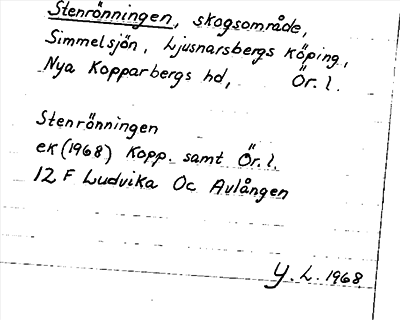 Stenrönningen, skogsområde,
Simmelsjön, Ljusnarsbergs köping,
Nya Kopparbergs hd, Ör. l.
Stenrönningen
ek (1968) Kopp. samt Ör. l.
12 F Ludvika Oc Avlången
Y. L. 1968